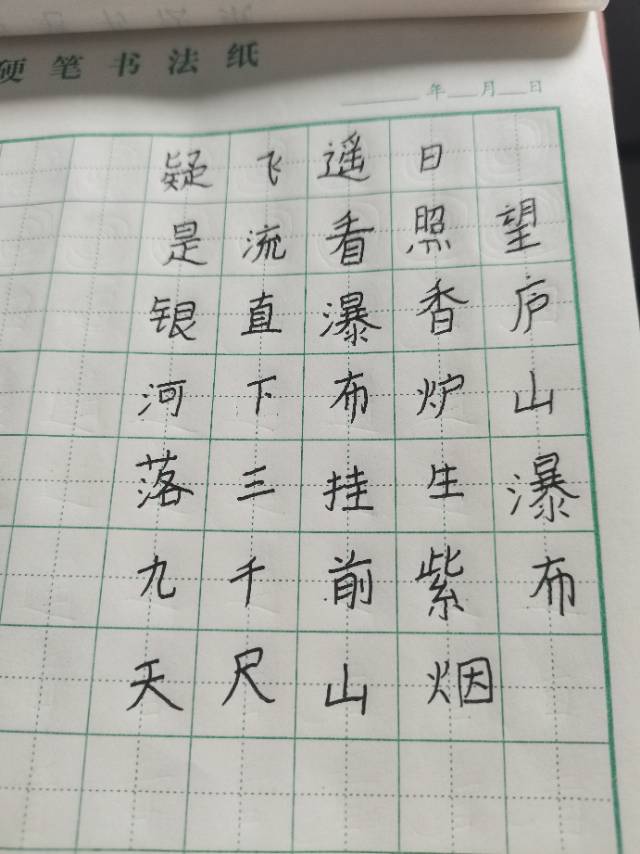 硬笔书法纸
年 月 日
望庐山瀑布
日照香炉生紫烟
遥看瀑布挂前山
飞流直下三千尺
疑是银河落九天